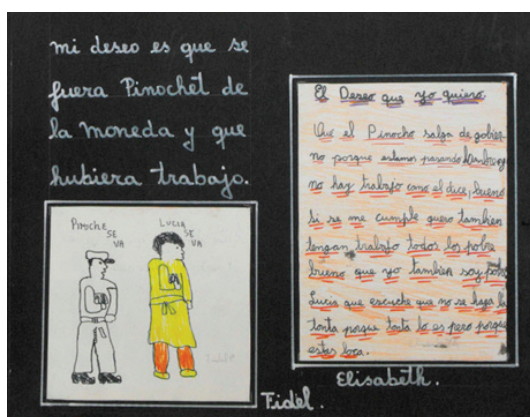 mi deseo es que se
fuera Pinochet de
la moneda y que
hubiera trabajo.
Pinoche
SE
VA
Lucia
SE
VA
Fidel.
El Deseo que yo quiero.
Que el Pinocho salga de gobier
no porque estamos pasando hambre y
no hay trabajo como el dice, bueno
si se me cumple quero tambien
tengan trabajo todos los pobre
bueno que yo tambien soy pobre
Lucia que escuche que no se haga la
tonta porque tonta lo es pero porque
estas loca.
Elisabeth.